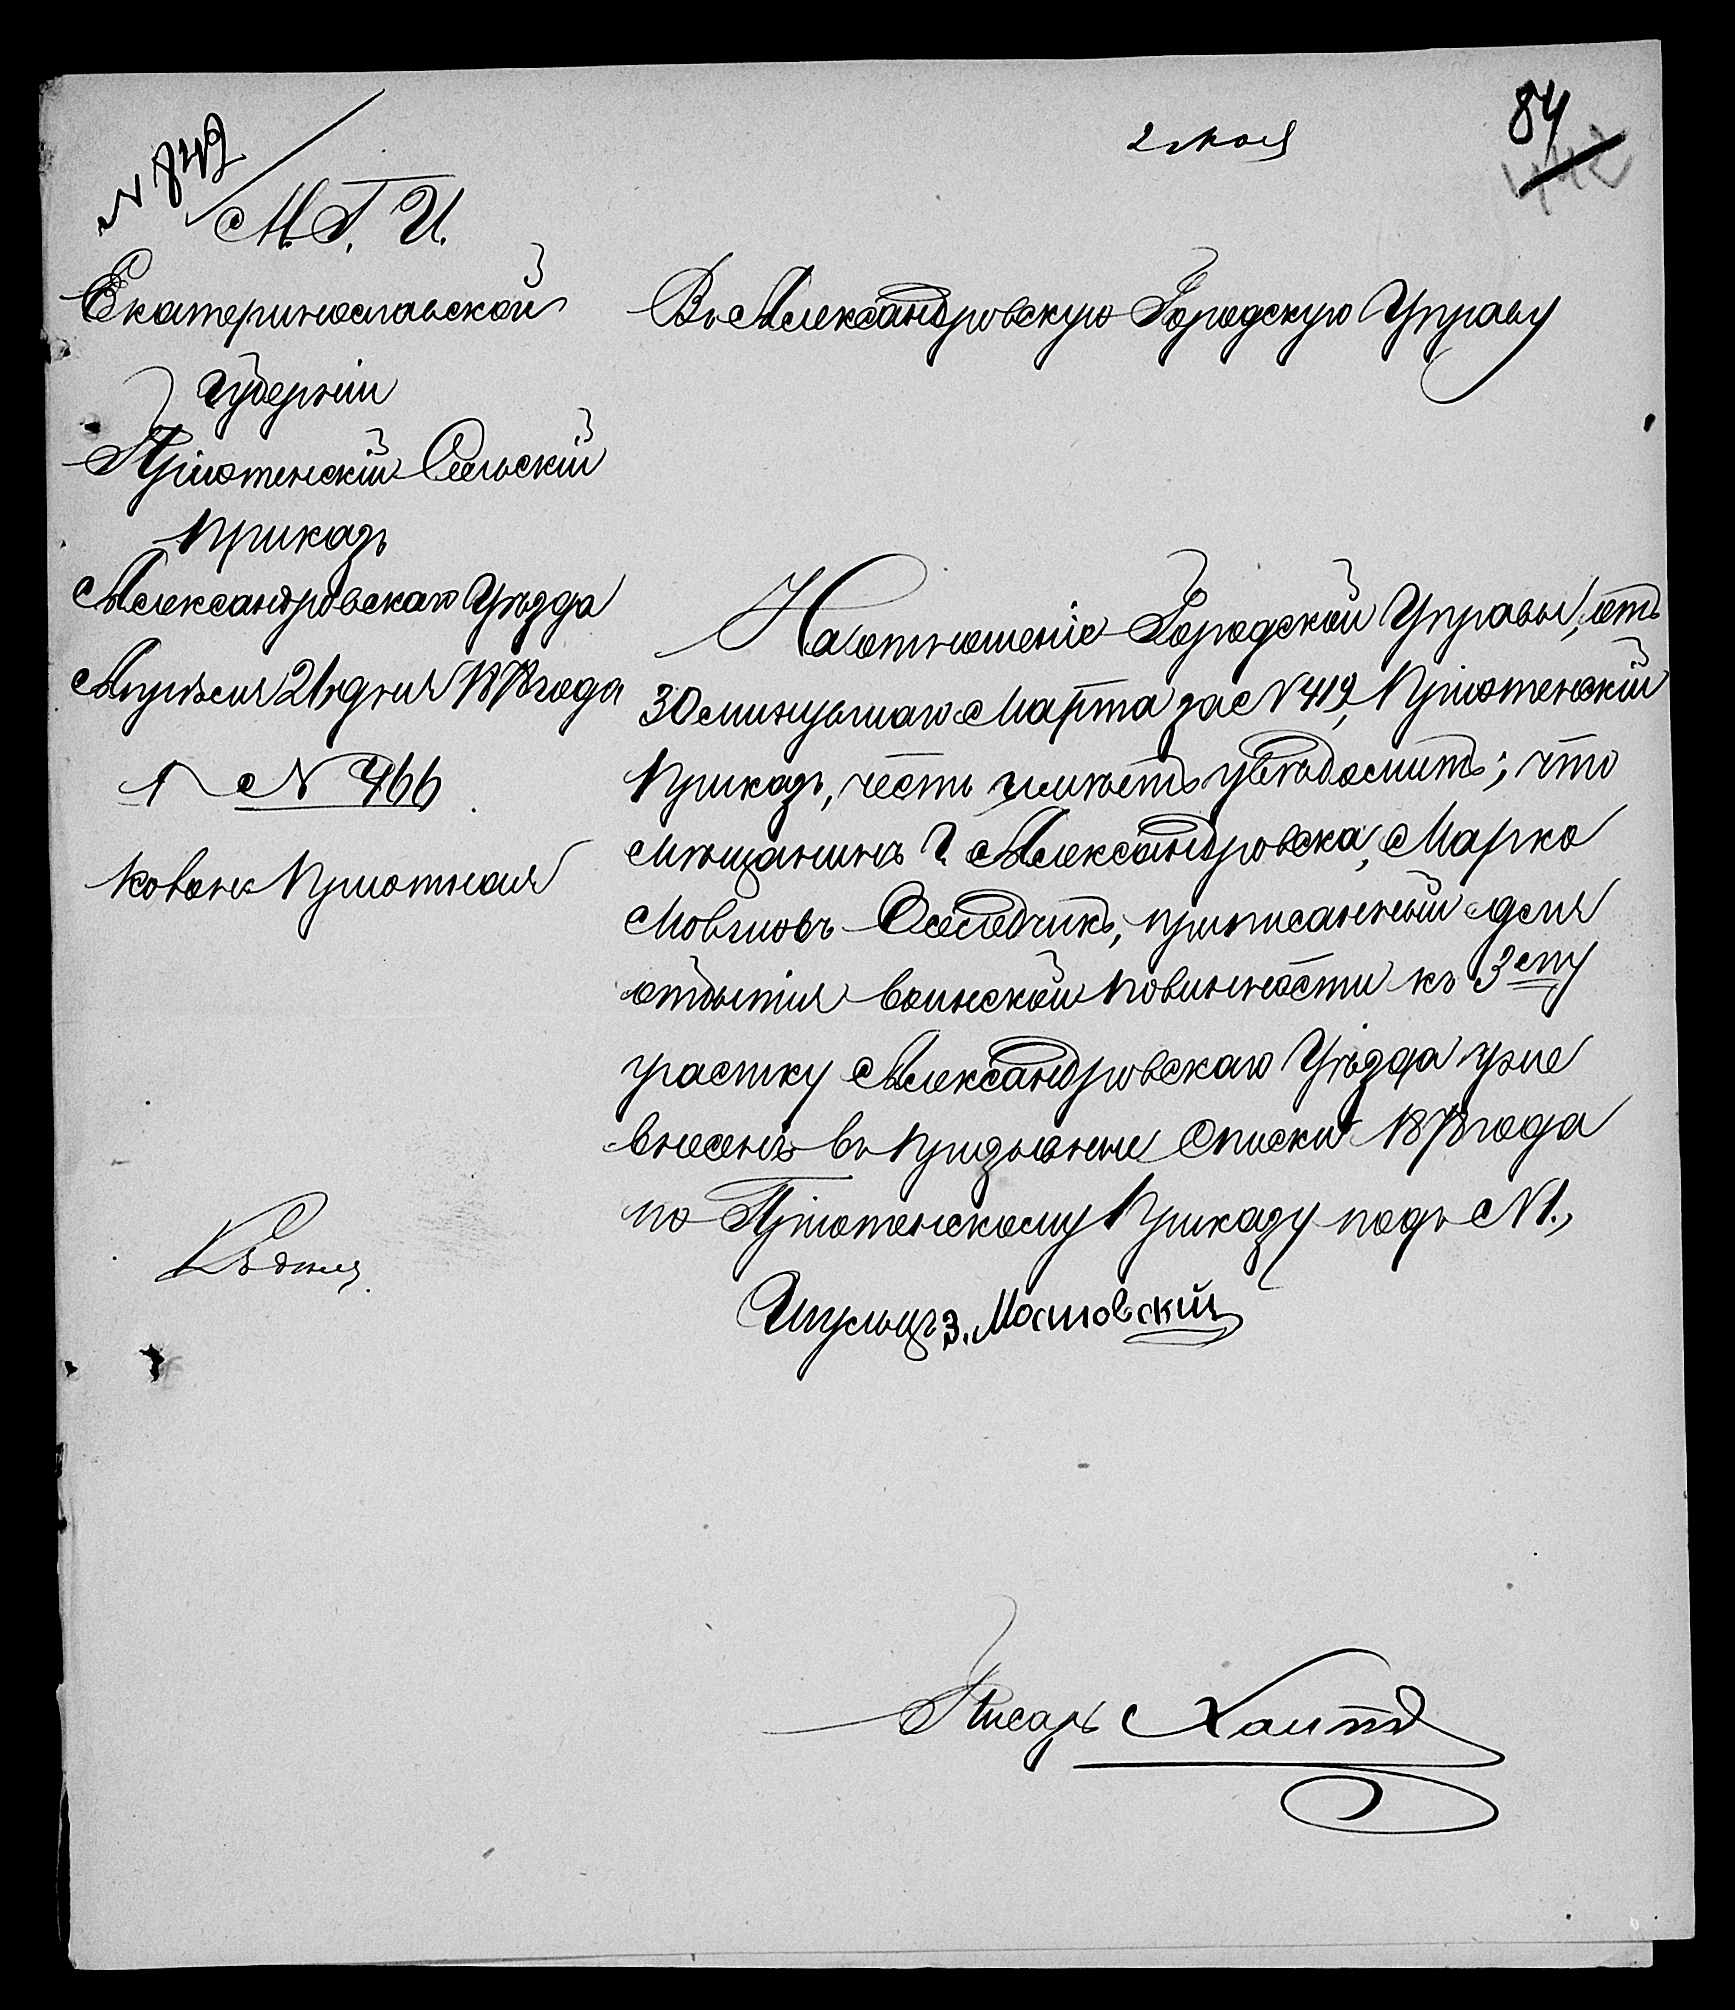 84
2 Мая
N 842
М. Г. И.
Екатеринославской
Губерніи
Пріютенскій Сельскій
Приказъ
Александровскаго Уѣзда
Апрѣля 21 дня 1878 года
N 466
Колон. Пріютная
Въ Александровскую Городскую Управу
На отношеніе Городской Управы, отъ
30 минувшаго Марта за N 419, Пріютенскій
Приказъ, честь имѣетъ увѣдомить; что
мѣщанинъ г. Александровска, Марко
Мовшовъ Оселедчикъ, приписанный для
отбытія воинской повинности къ 3ему
участку Александровскаго Уѣзда уже
внесенъ въ призывные списки 1878 года
по Пріютенскому Приказу подъ N 1.,
Шульцъ З. Масловскій
Писарь